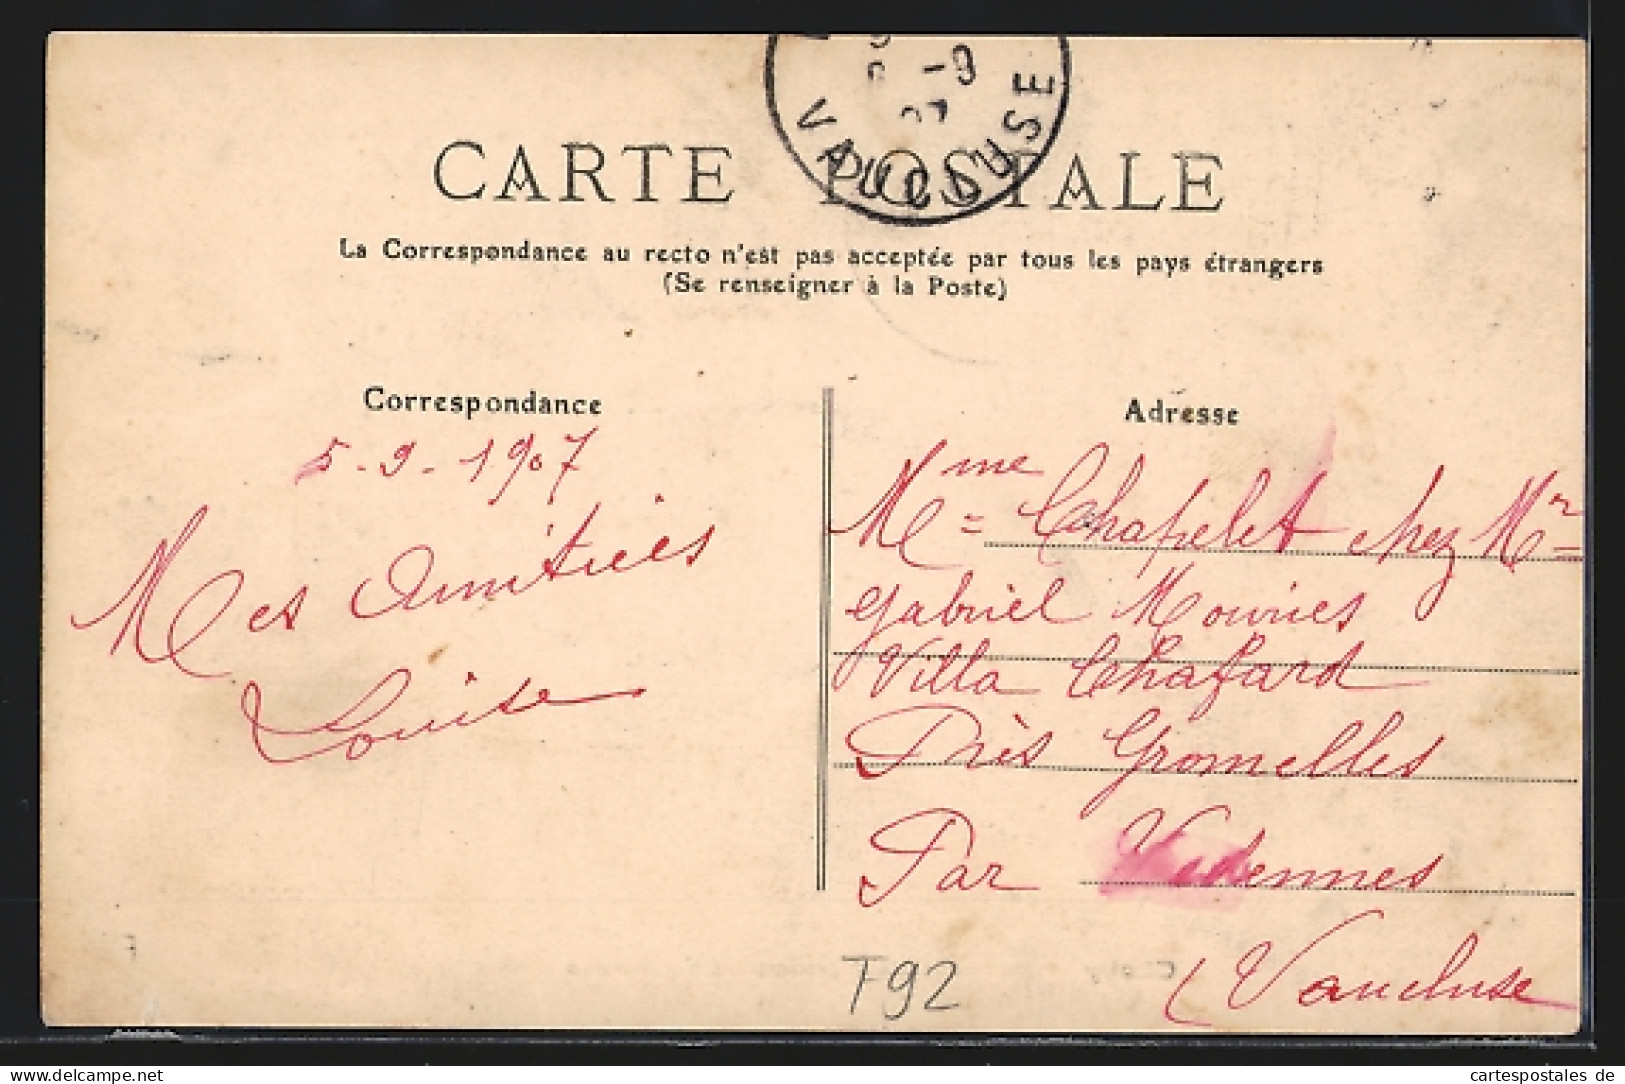 VAUCLUSE
-9
07
CARTE POSTALE
La Correspondance au recto n'est pas acceptée par tous les pays étrangers
(Se renseigner à la Poste)
Correspondance
5-9-1907
Mes Amitiés
Louise
Adresse
Mme Chapelet chez Mr
Gabriel Mouries
Villa Chafard
Près Gromelles
Par Vedennes
(Vaucluse
T92
cartespostales de